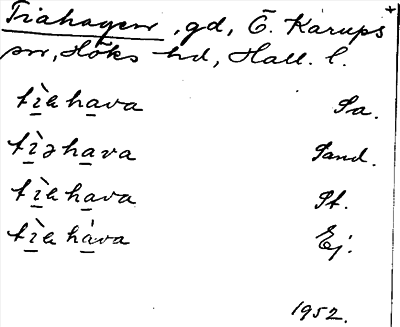 Tiahagen, gd, Ö. Karups +
sn, Höks hd, Hall. l.
tìahava Sa.
tìəhava Sand.
tìahava St.
tìahàva Ej.
1952.